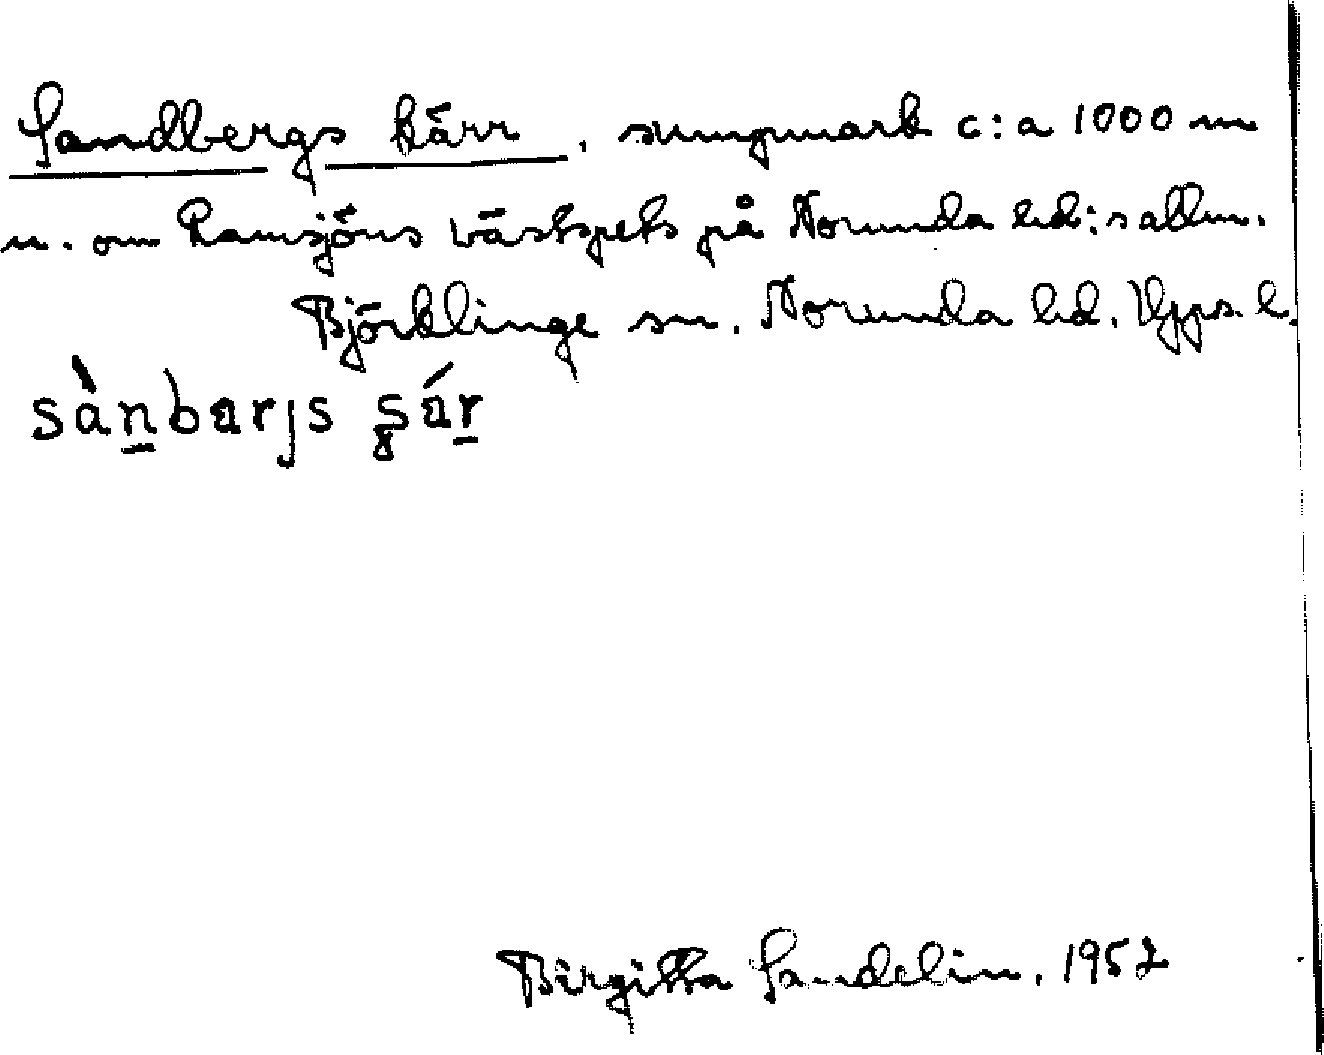 Sandbergs kärr, sumpmark c:a 1000 m
n. om Ramsjöns västspets på Norunda hd:s allm.
Björklinge sn. Norunda hd. Upps. l.
sànbarjs şár
Birgitta Sandelin. 1952